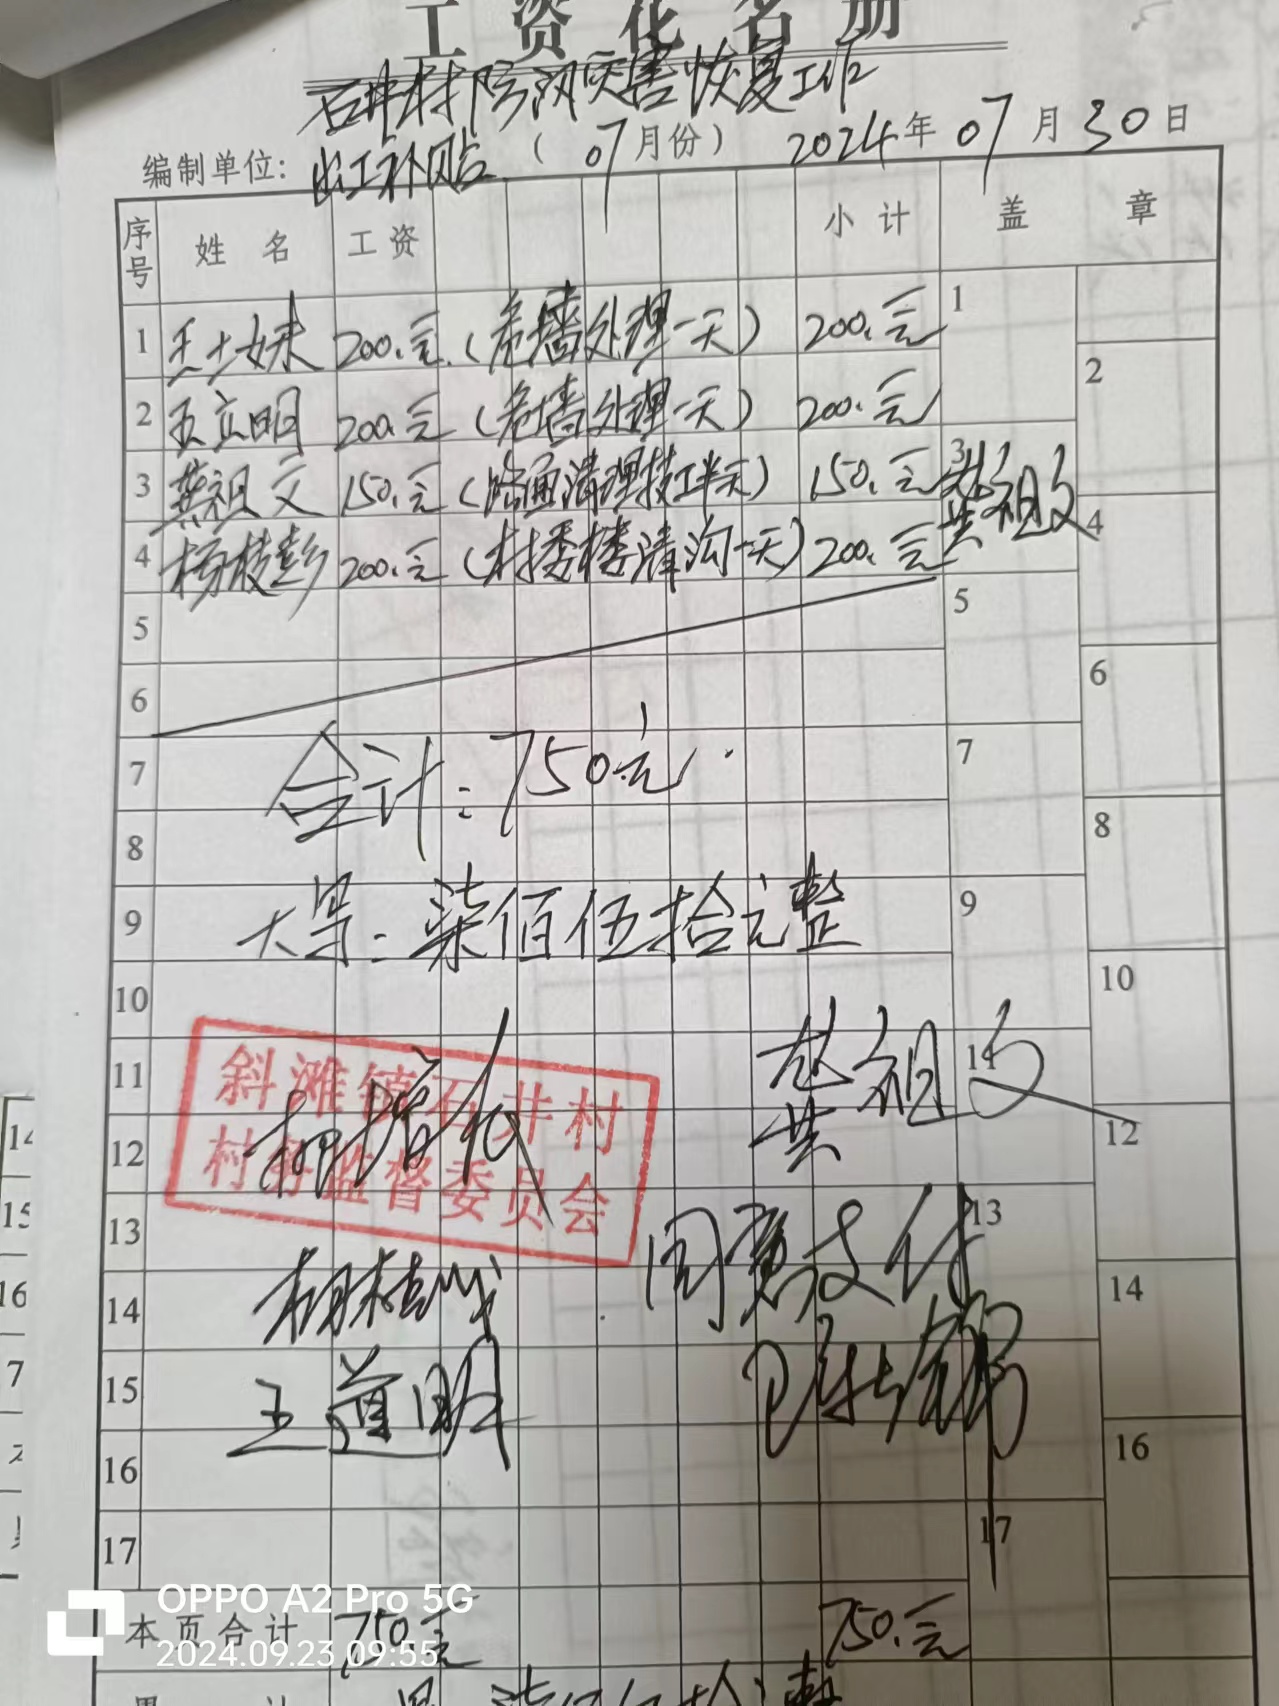 工资花名册
石井村防汛灾害恢复工作
编制单位: 出工补贴 (07月份) 2024年07月30日
序号 姓名 工资 小计 盖章
1 王土妹 200.元 (危墙处理一天) 200.元 1
2 王立明 200.元 (危墙处理一天) 200.元 2
3 龚祖文 150.元 (路面清理技工半天) 150.元 3 龚祖文
4 杨枝彭 200.元 (村委楼清沟一天) 200.元 4
5 5
6 6
7 合计:750元. 7
8 8
9 大写:柒佰伍拾元整 9
10 10
11 斜滩镇石井村 龚祖文 11
12 村务监督委员会 12
13 同意支付 13
14 14
15 王道明
16 16
17 17
本页合计 750元 750.元
OPPO A2 Pro 5G
2024.09.23 09:55
14
15
16
7